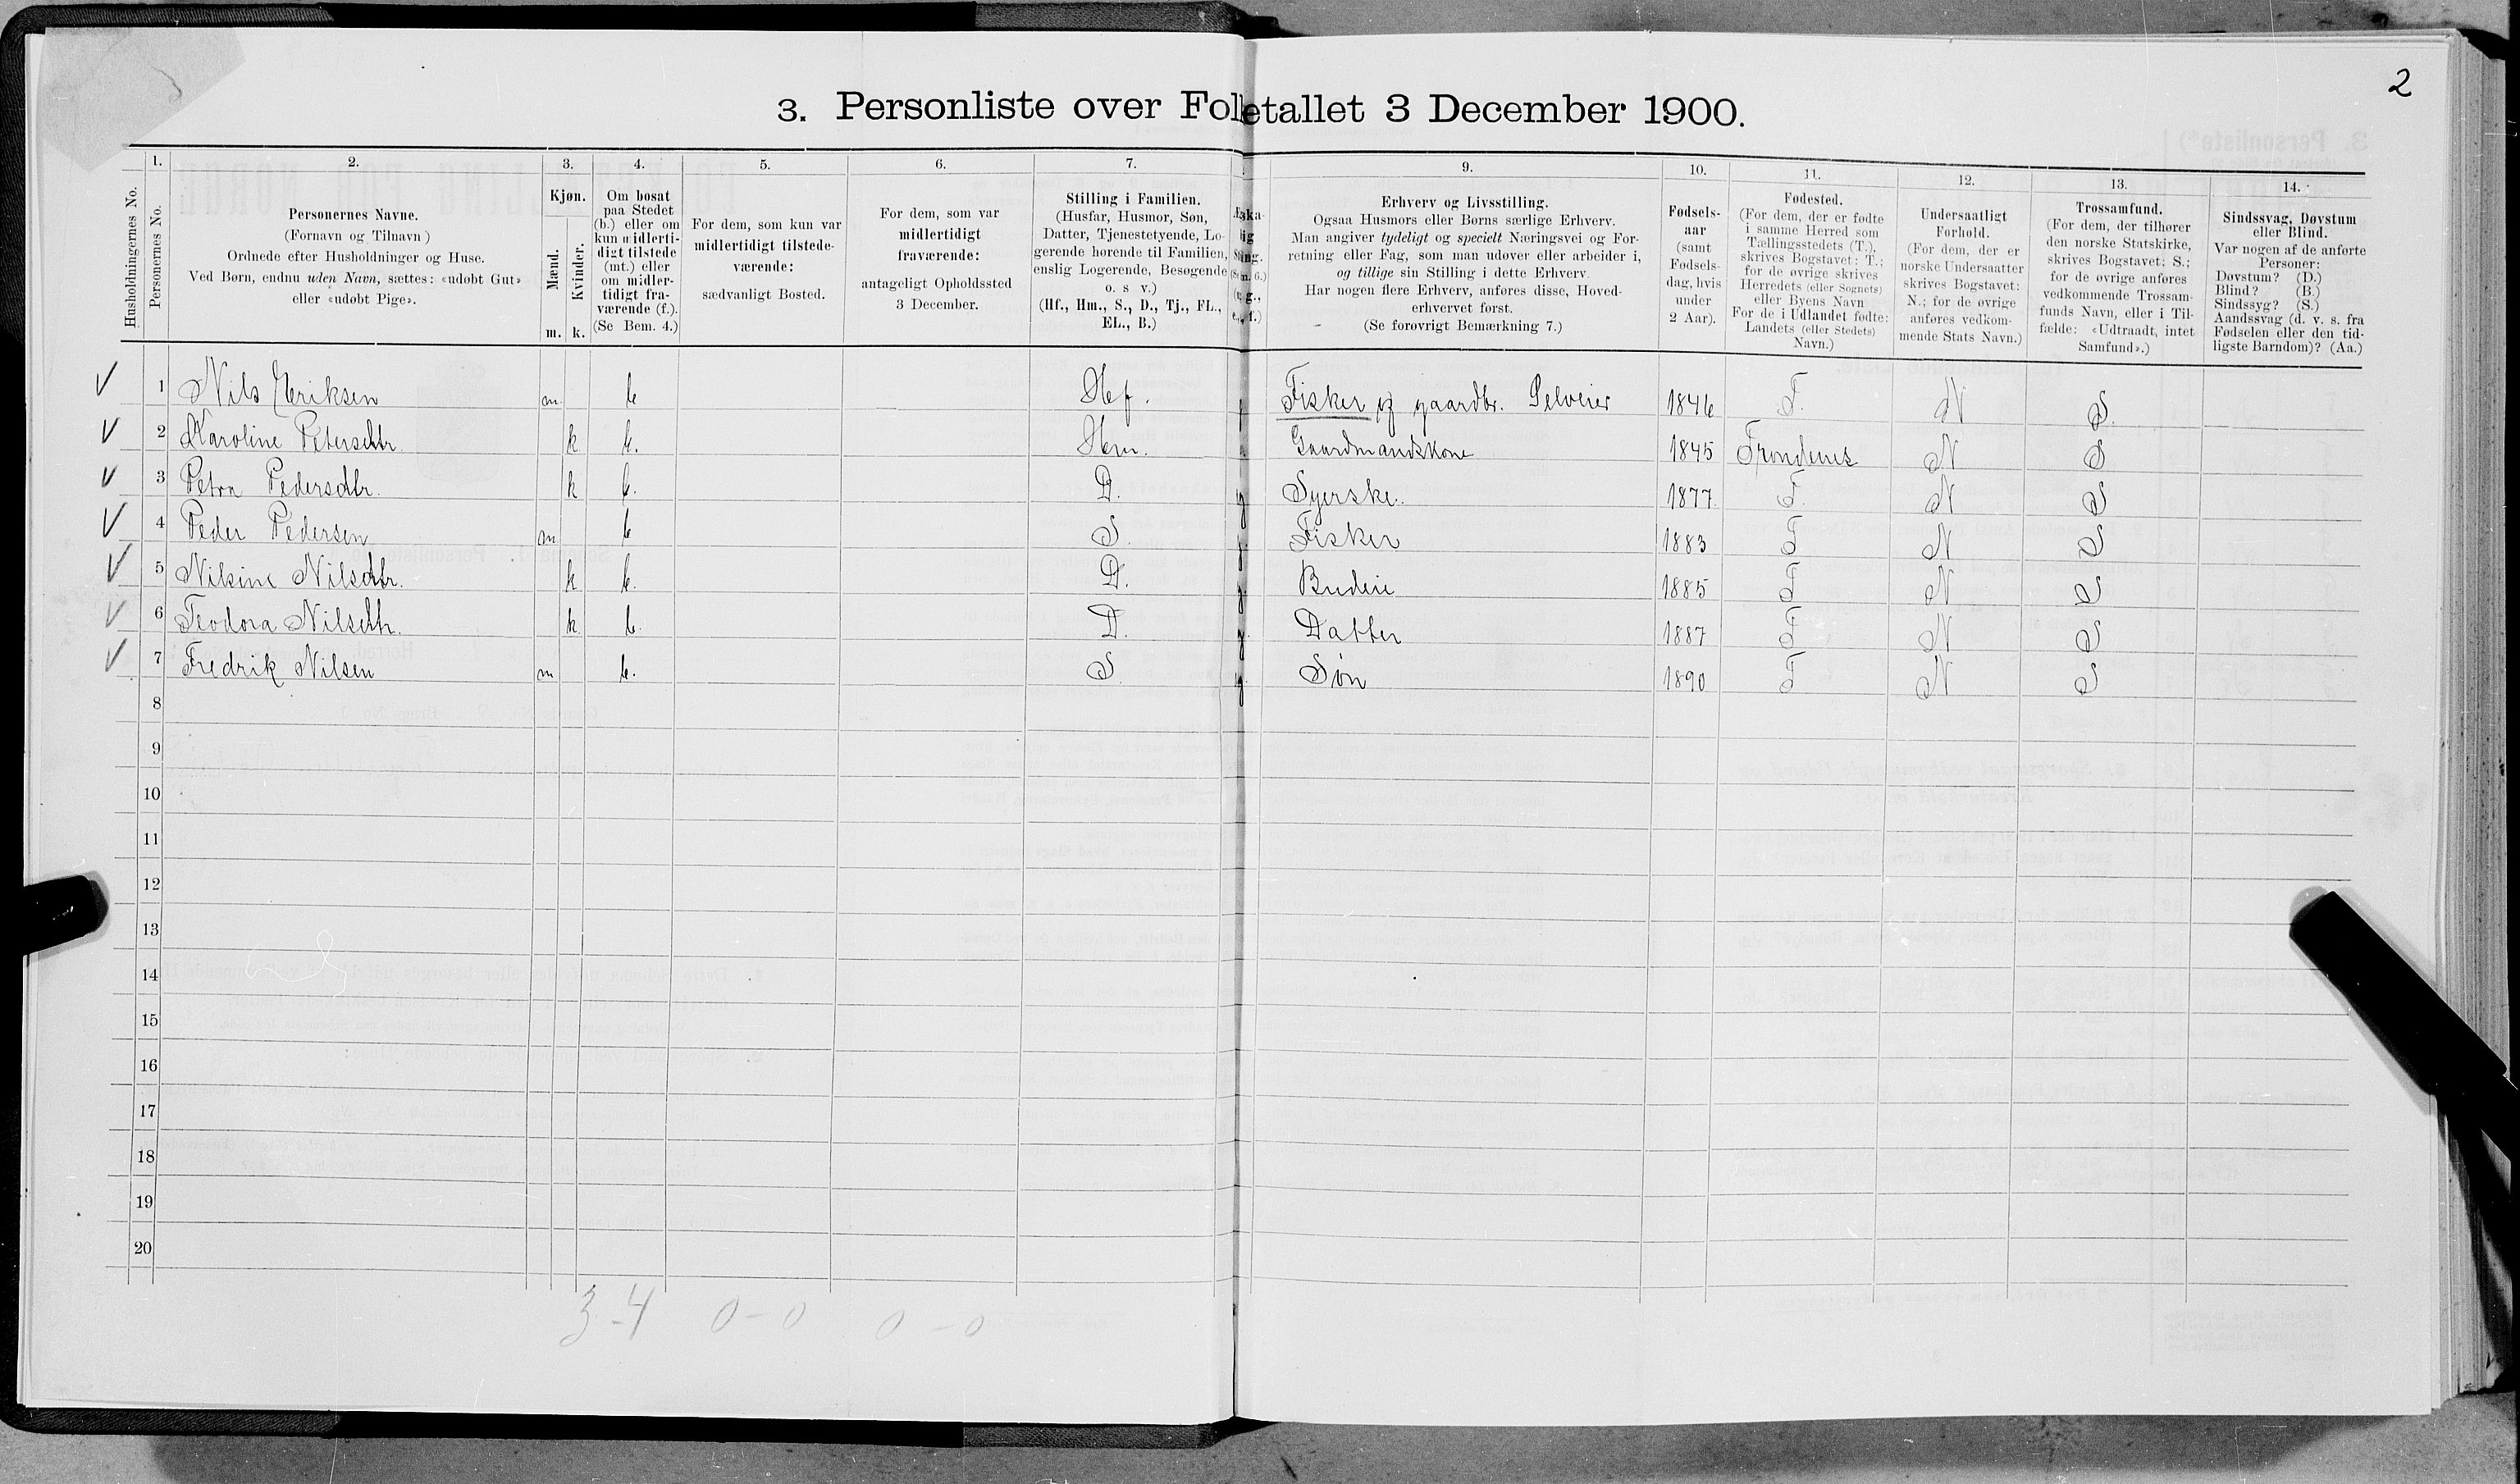 2
3. Personliste over Folketallet 3 December 1900.
1. 2. 3. 4. 5. 6. 7. 9. 10. 11. 12. 13. 14.
Husholdningernes No.
Personernes No.
Personernes Navne.
(Fornavn og Tilnavn)
Ordnede efter Husholdninger og Huse.
Ved Børn, endnu uden Navn, sættes: «udøbt Gut»
eller «udøbt Pige».
Kjøn.
Mænd.
Kvinder.
m. k.
Om bosat
paa Stedet
(b.) eller om
kun midlerti-
digt tilstede
(mt.) eller
om midler-
tidigt fra-
værende (f.).
(Se Bem. 4.)
For dem, som kun var
midlertidigt tilstede-
værende:
sædvanligt Bosted.
For dem, som var
midlertidigt
fraværende:
antageligt Opholdssted
3 December.
Stilling i Familien.
(Husfar, Husmor, Søn,
Datter, Tjenestetyende, Lo-
gerende hørende til Familien,
enslig Logerende, Besøgende
o. s v.)
(Hf., Hm., S., D., Tj., FL.,
EL., B.)
Erhverv og Livsstilling.
Ogsaa Husmors eller Børns særlige Erhverv.
Man angiver tydeligt og specielt Næringsvei og For-
retning eller Fag, som man udøver eller arbeider i,
og tillige sin Stilling i dette Erhverv.
Har nogen flere Erhverv, anføres disse, Hoved-
erhvervet først.
(Se forøvrigt Bemærkning 7.)
Fødsels-
aar
(samt
Fødsels-
dag, hvis
under
2 Aar).
Fødested.
(For dem, der er fødte
i samme Herred som
Tællingsstedets (T.),
skrives Bogstavet: T.;
for de øvrige skrives
Herredets (eller Sognets)
eller Byens Navn
For de i Udlandet fødte:
Landets (eller Stedets)
Navn.)
Undersaatligt
Forhold.
(For dem, der er
norske Undersaatter
skrives Bogstavet:
N.; for de øvrige
anføres vedkom-
mende Stats Navn.)
Trossamfund.
(For dem, der tilhører
den norske Statskirke,
skrives Bogstavet: S.;
for de øvrige anføres
vedkommende Trossam-
funds Navn, eller i Til-
fælde: «Udtraadt, intet
Samfund».)
Sindssvag, Døvstum
eller Blind.
Var nogen af de anførte
Personer:
Døvstum? (D.)
Blind? (B.)
Sindssyg? (S.)
Aandssvag (d. v. s. fra
Fødselen eller den tid-
ligste Barndom)? (Aa.)
1 Nils Eriksen m b Hf. Fisker og gaardbr. Selveier 1846 T. N S.
2 Karoline Petersdtr. k b. Hm. Gaardmandskone 1845 Trondenes N S
3 Petra Pedersdtr. k b. D. g Syerske. 1877 T. N S
4 Peder Pedersen m b S. Fisker 1883 T N S
5 Nilsine Nilsdtr. k b. D. Budeie 1885 T N S
6 Teodora Nilsdtr. k b. D. Datter 1887 T N S
7 Fredrik Nilsen m b. S g. Søn 1890 T N S
8
9
10
11
12
13
14
15
16
17
18
19
20
3-4 0-0 0-0